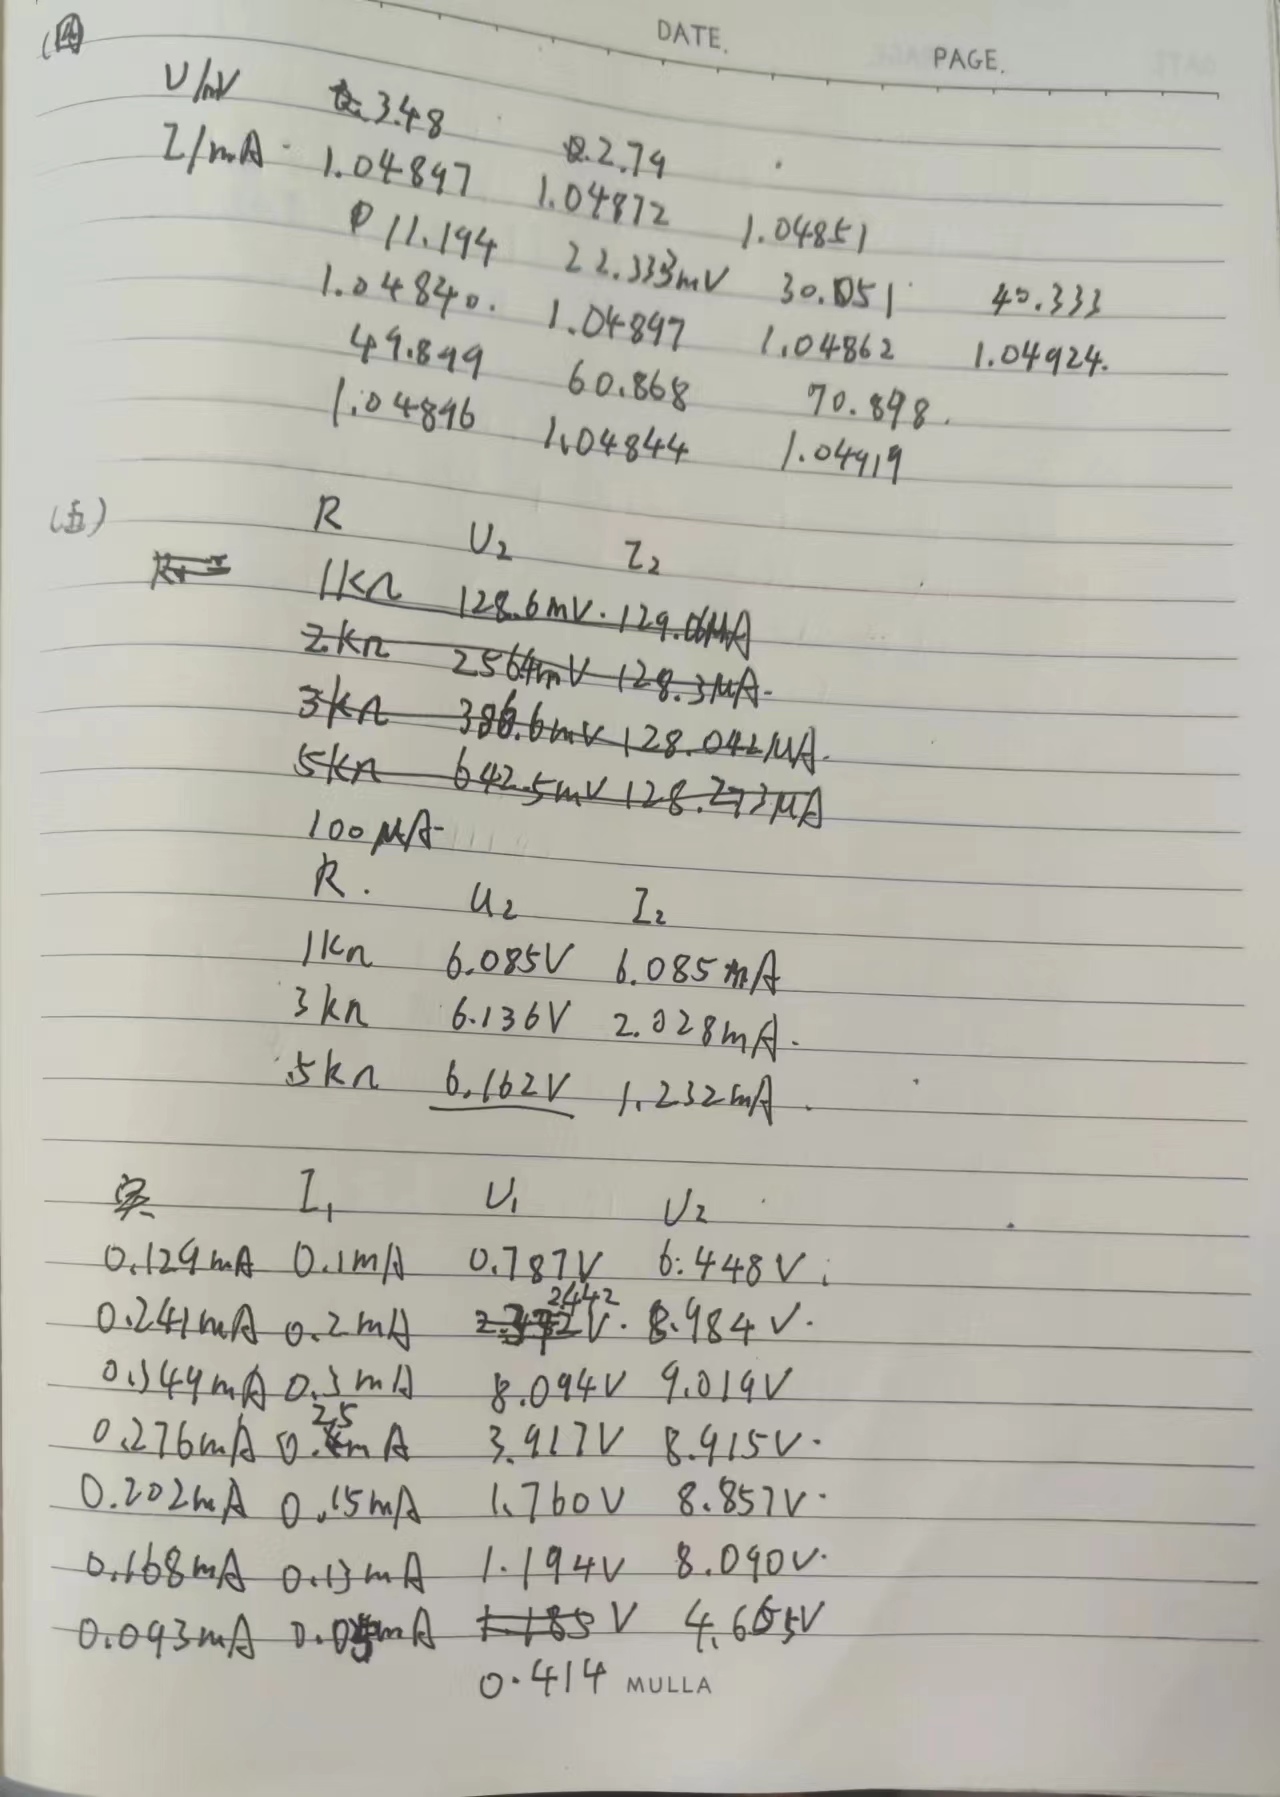 DATE. PAGE.
(四)
U/mV 3.48 2.79
I/mA 1.04897 1.04872 1.04851
11.194 22.333mV 30.051 40.333
1.04840. 1.04897 1.04862 1.04924.
49.899 60.868 70.898.
1.04896 1.04844 1.04919
(五) R U₂ I₂
1kΩ 128.6mV. 129.06μA
2kΩ 256.4mV 128.3μA.
3kΩ 386.6mV 128.042μA.
5kΩ 642.5mV 128.273μA
100μA
R. U₂ I₂
1kΩ 6.085V 6.085mA
3kΩ 6.136V 2.028mA.
5kΩ 6.162V 1.232mA.
实 I₁ U₁ U₂
0.129mA 0.1mA 0.787V 6.448V.
0.241mA 0.2mA 2.442 V. 8.984V.
0.349mA 0.3mA 8.094V 9.019V
0.276mA 0.25mA 3.917V 8.915V.
0.202mA 0.15mA 1.760V 8.857V.
0.168mA 0.13mA 1.194V 8.090V.
0.093mA mA 1.185 V 4.665V
0.414 MULLA